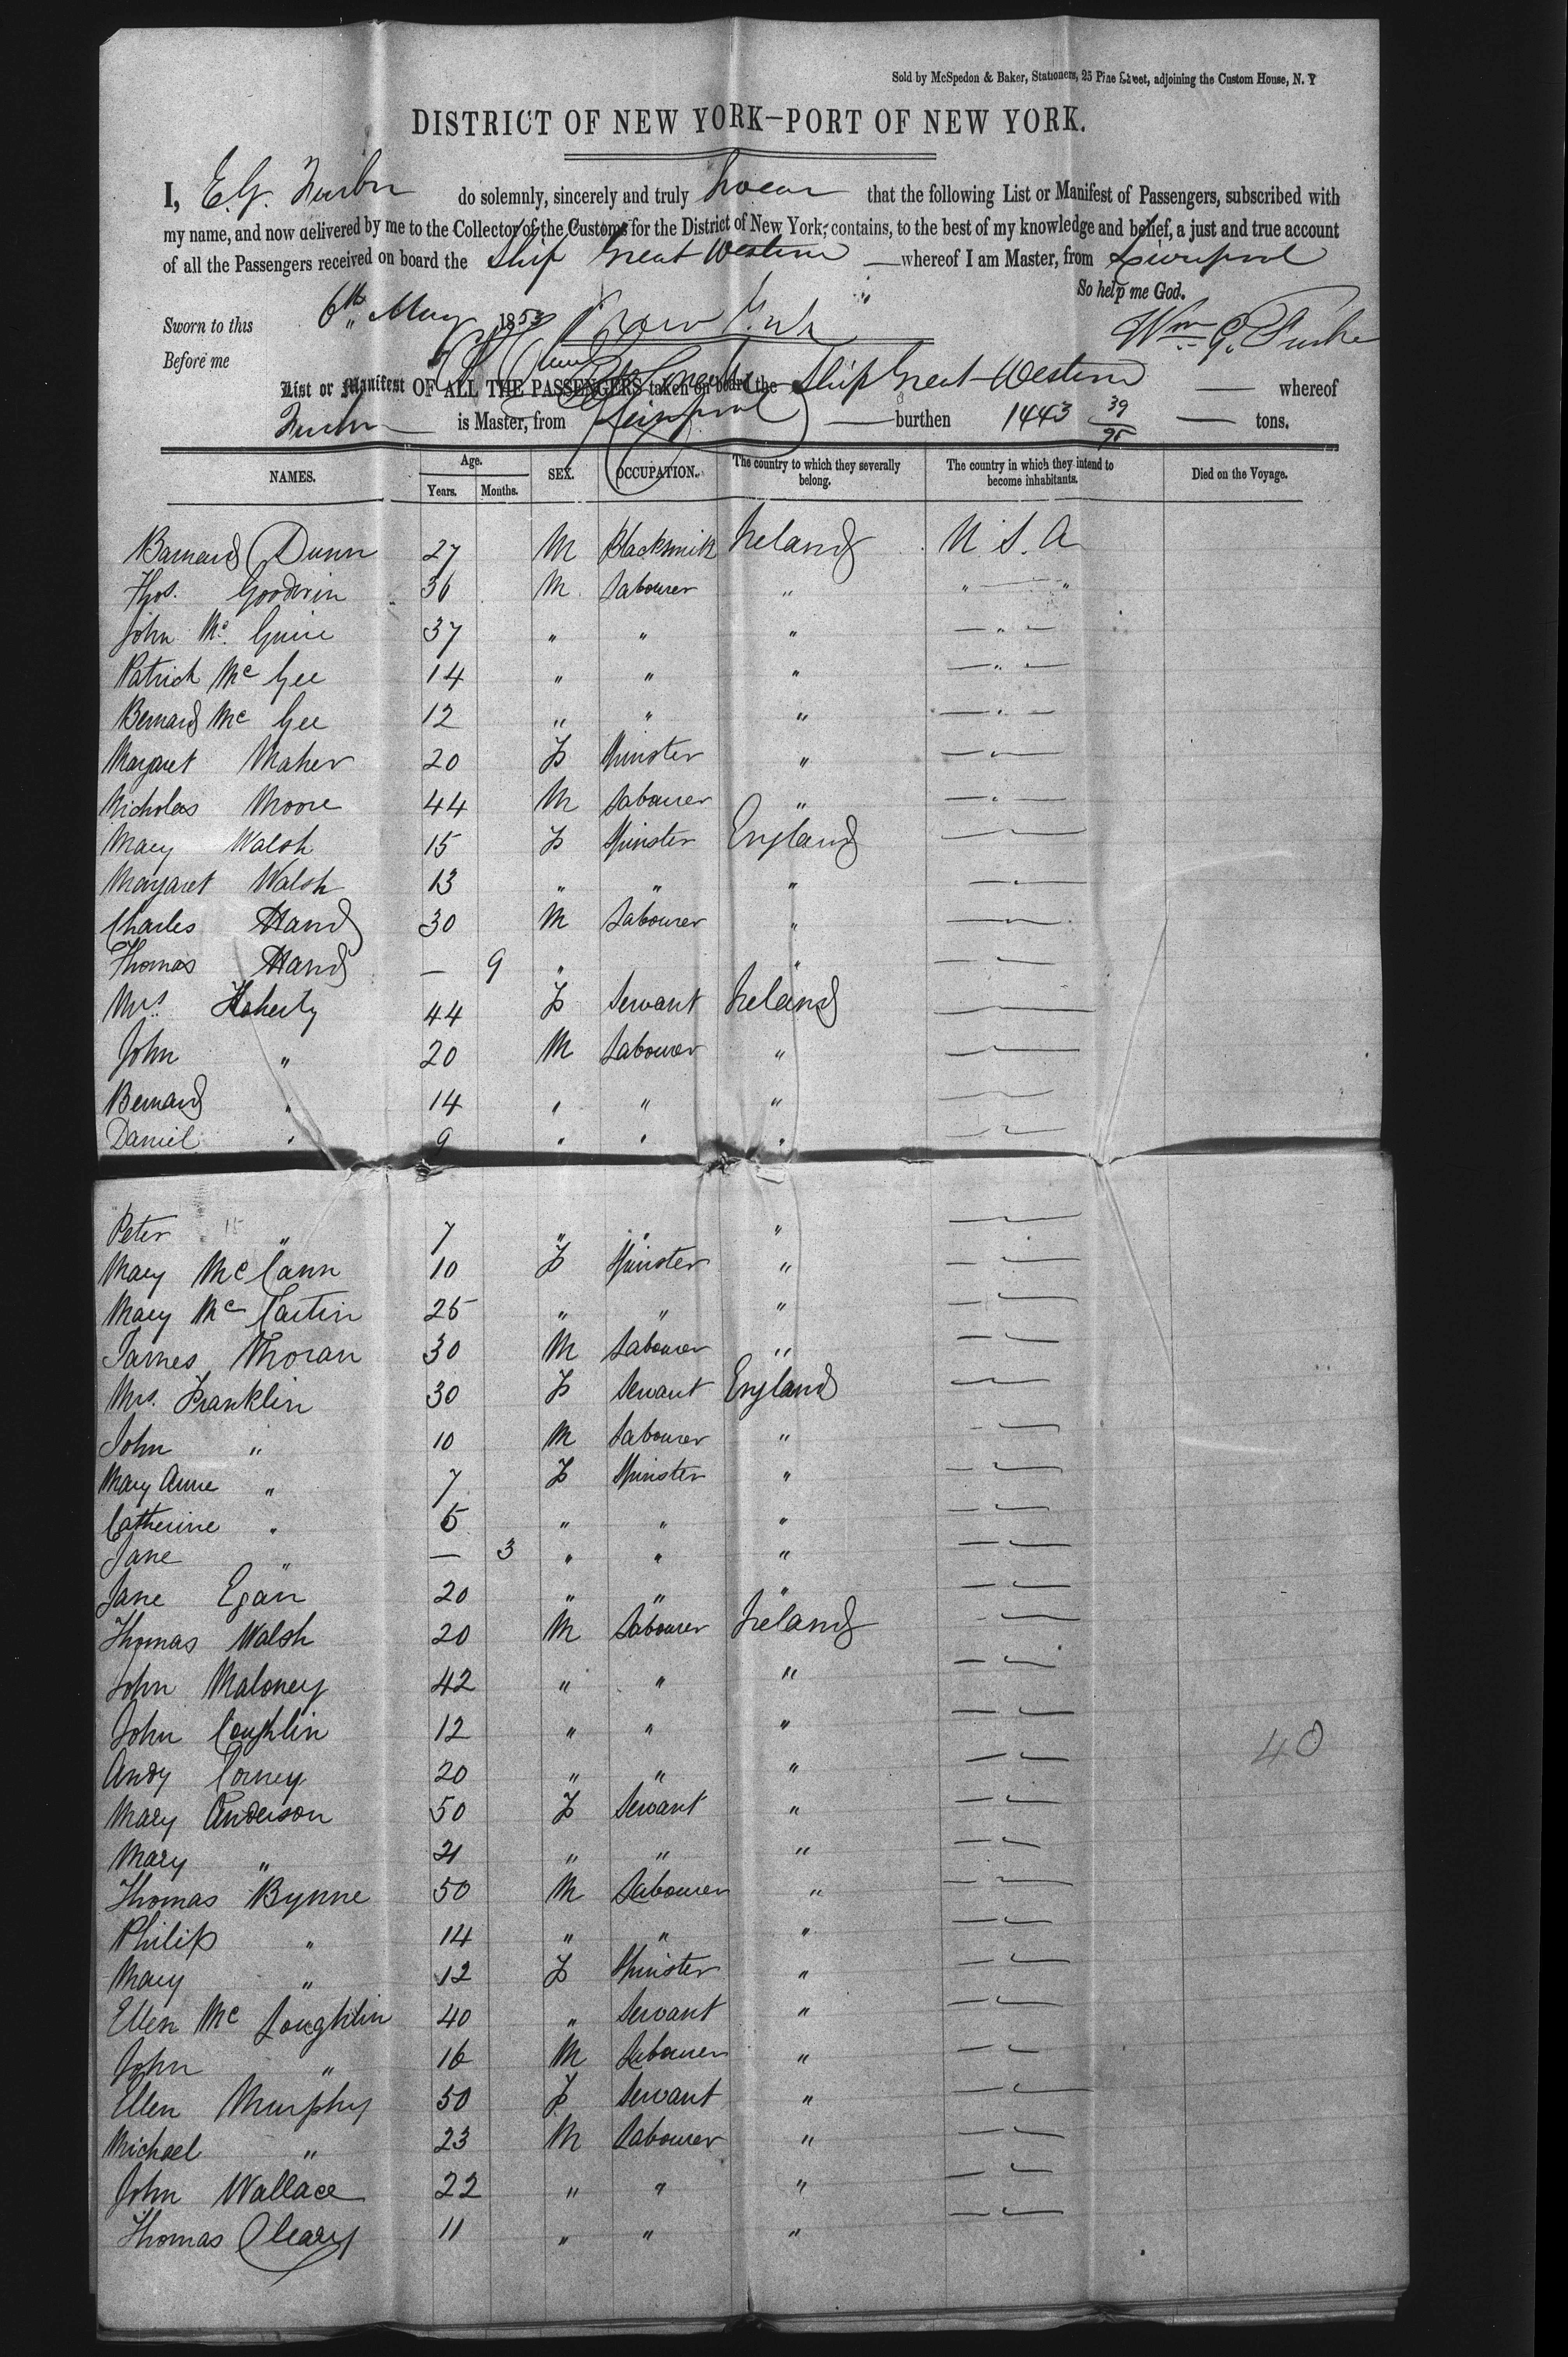 Sold by McSpedon & Baker, Stationers, 25 Pine Street, adjoining the Custom House, N. Y
DISTRICT OF NEW YORK—PORT OF NEW YORK.
I, E. G. do solemnly, sincerely and truly swear that the following List or Manifest of Passengers, subscribed with
my name, and now delivered by me to the Collector of the Customs for the District of New York, contains, to the best of my knowledge and belief, a just and true account
of all the Passengers received on board the Ship Great Western — whereof I am Master, from Liverpool
So help me God.
Sworn to this 6th May 1853 New York
Before me Wm G.
List or Manifest OF ALL THE PASSENGERS taken on board the Ship Great Western — whereof
is Master, from Liverpool — burthen 1443 39/95 — tons.
NAMES. Age. Years. Months. SEX. OCCUPATION. The country to which they severally belong. The country in which they intend to become inhabitants. Died on the Voyage.
Barnard Dunn 27 M Blacksmith Ireland U. S. A
Thos. Goodwin 36 M Labourer " " "
John Mc Guire 37 " " " — " —
Patrick Mc Gee 14 " " " — " —
Bernard Mc Gee 12 " " " — " —
Margaret Maher 20 F Spinster " — " —
Nicholas Moore 44 M Labourer " — " —
Mary Walsh 15 F Spinster England — " —
Margaret Walsh 13 " " " — " —
Charles Hand 30 M Labourer " — " —
Thomas Hand — 9 " " — " —
Mrs. Flaherty 44 F Servant Ireland — " —
John " 20 M Labourer " — " —
Bernard " 14 " " " — " —
Daniel " 9 " " " — " —
Peter " 7 " " " — " —
Mary McCann 10 F Spinster " — " —
Mary Mc Cartin 25 " " " — " —
James Moran 30 M Labourer " — " —
Mrs. Franklin 30 F Servant England — " —
John " 10 M Labourer " — " —
Mary Anne " 7 F Spinster " — " —
Catherine " 5 " " " — " —
Jane " — 3 " " " — " —
Jane Egan 20 " " " — " —
Thomas Walsh 20 M Labourer Ireland — " —
John Maloney 42 " " " — " —
John Coughlin 12 " " " — " —
Andy Corney 20 " " " — " — 40
Mary Anderson 50 F Servant " — " —
Mary " 21 " " " — " —
Thomas Bynne 50 M Labourer " — " —
Philip " 14 " " " — " —
Mary " 12 F Spinster " — " —
Ellen Mc Loughlin 40 " Servant " — " —
John " 16 M Labourer " — " —
Ellen Murphy 50 F Servant " — " —
Michael " 23 M Labourer " — " —
John Wallace 22 " " " — " —
Thomas Cleary 11 " " " — " —